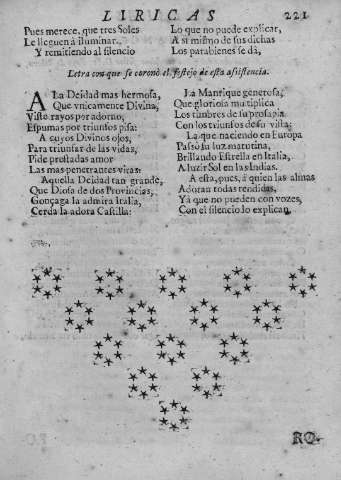 LIRICAS 221
Pues merece, que tres Soles
Le lleguen à iluminar,
Y remitiendo al silencio
Lo que no puede explicar,
A si mismo de sus dichas
Los parabienes se dà,
Letra con que se coronò el festejo de esta assistencia.
A La Deidad mas hermosa,
Que vnicamente Divina,
Viste rayos por adorno,
Espumas por triunfos pisa:
A cuyos Divinos ojos,
Para triunfar de las vidas,
Pide prestadas amor
Las mas penetrantes viras:
Aquella Deidad tan grande,
Que Diosa de dos Provincias,
Gonçaga la admira Italia,
Cerda la adora Castilla:
La Manrique generosa,
Que gloriosa multiplica
Los timbres de su prosapia
Con los triunfos de su vista:
La que naciendo en Europa
Passò su luz matutina,
Brillando Estrella en Italia,
A luzir Sol en las Indias.
A esta, pues, à quien las almas
Adoran todas rendidas,
Yà que no pueden con vozes,
Con el silencio lo explican.
RO-